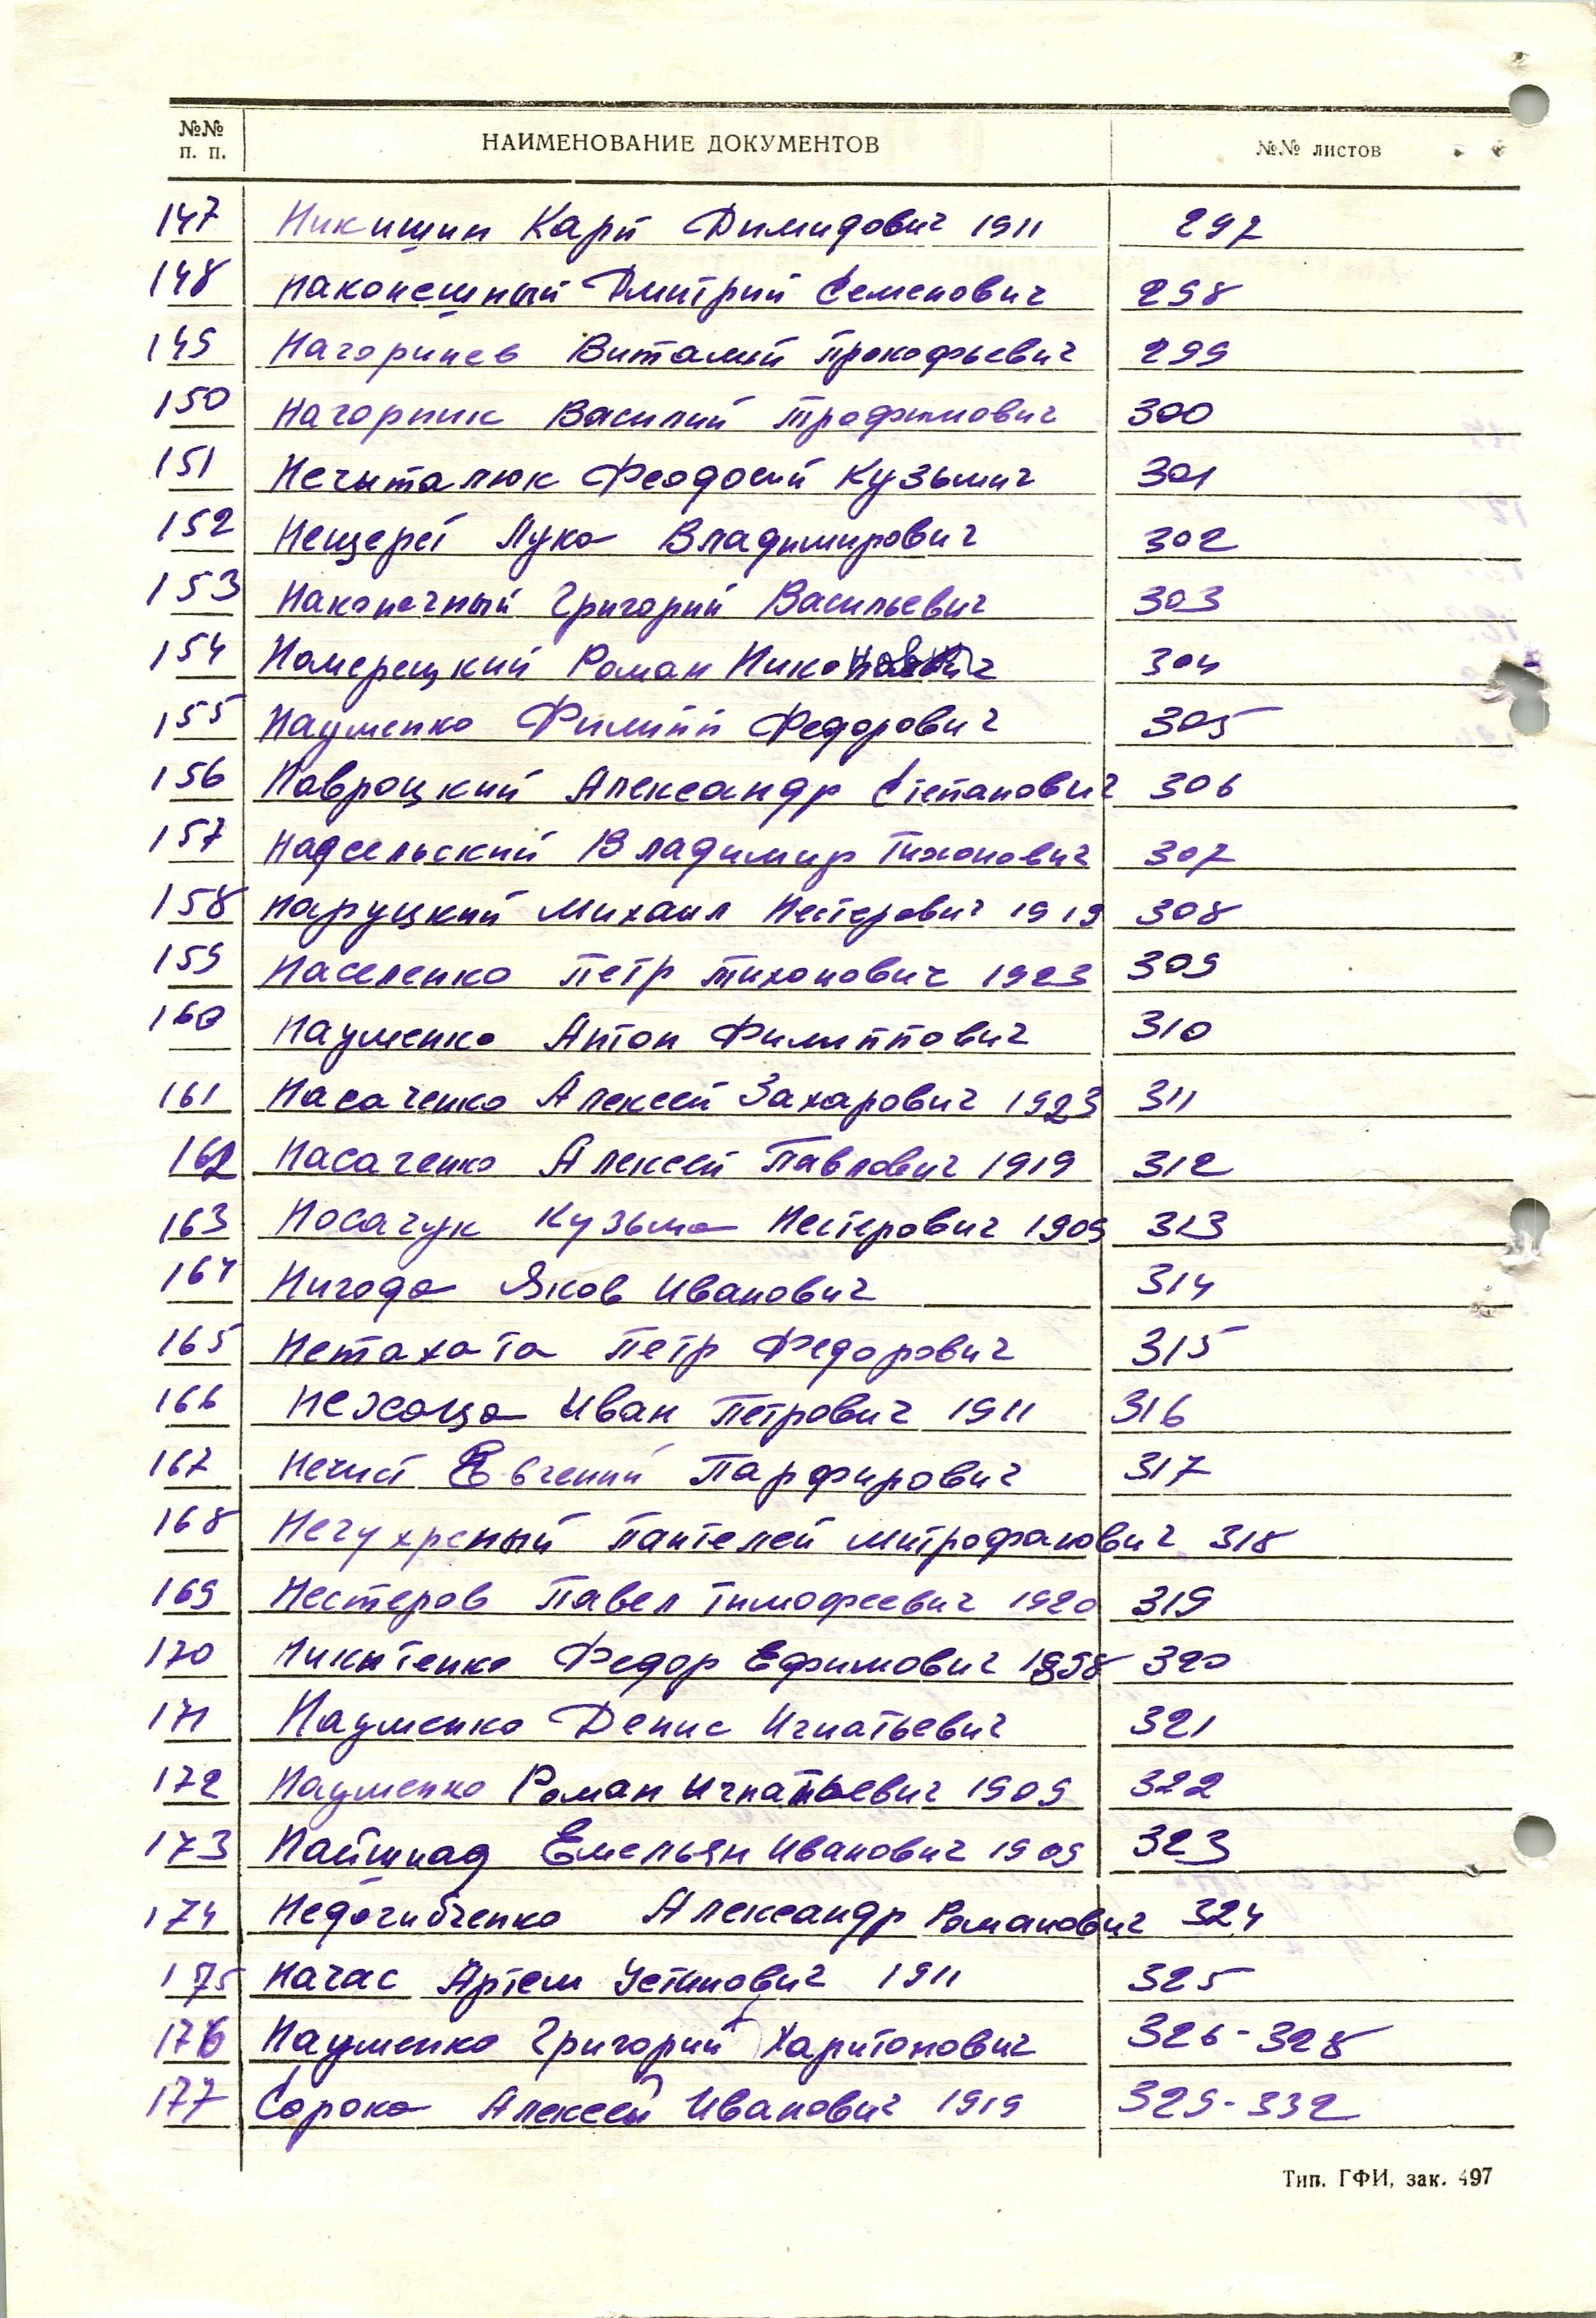 №№ п. п. НАИМЕНОВАНИЕ ДОКУМЕНТОВ №№ листов
147 Никишин Карп Димидович 1911 297
148 Наконешный Дмитрий Семенович 298
149 Нагоринев Виталий Прокофьевич 299
150 Нагорник Василий Трофимович 300
151 Нечиталюк Феодосий Кузьмич 301
152 Нещерет Лука Владимирович 302
153 Наконечный Григорий Васильевич 303
154 Номерецкий Роман Никонович 304
155 Науменко Филипп Федорович 305
156 Навроцкий Александр Степанович 306
157 Надсельский Владимир Тихонович 307
158 Наруцкий Михаил Нестерович 1919 308
159 Населенко Петр Тихонович 1923 309
160 Науменко Антон Филиппович 310
161 Насаченко Алексей Захарович 1923 311
162 Насаченко Алексей Павлович 1919 312
163 Носачук Кузьма Нестерович 1909 313
164 Нигода Яков Иванович 314
165 Нетахата Петр Федорович 315
166 Нехаща Иван Петрович 1911 316
167 Нечист Евгений Парфирович 317
168 Нечухреный Пантелей Митрофанович 318
169 Нестеров Павел Тимофеевич 1920 319
170 Никитенко Федор Ефимович 1898 320
171 Науменко Денис Игнатьевич 321
172 Науменко Роман Игнатьевич 1909 322
173 Найшпад Емельян Иванович 1909 323
174 Недогибченко Александр Романович 324
175 Начас Артем Устинович 1911 325
176 Науменко Григорий Харитонович 326-328
177 Сорока Алексей Иванович 1919 329-332
Тип. ГФИ, зак. 497